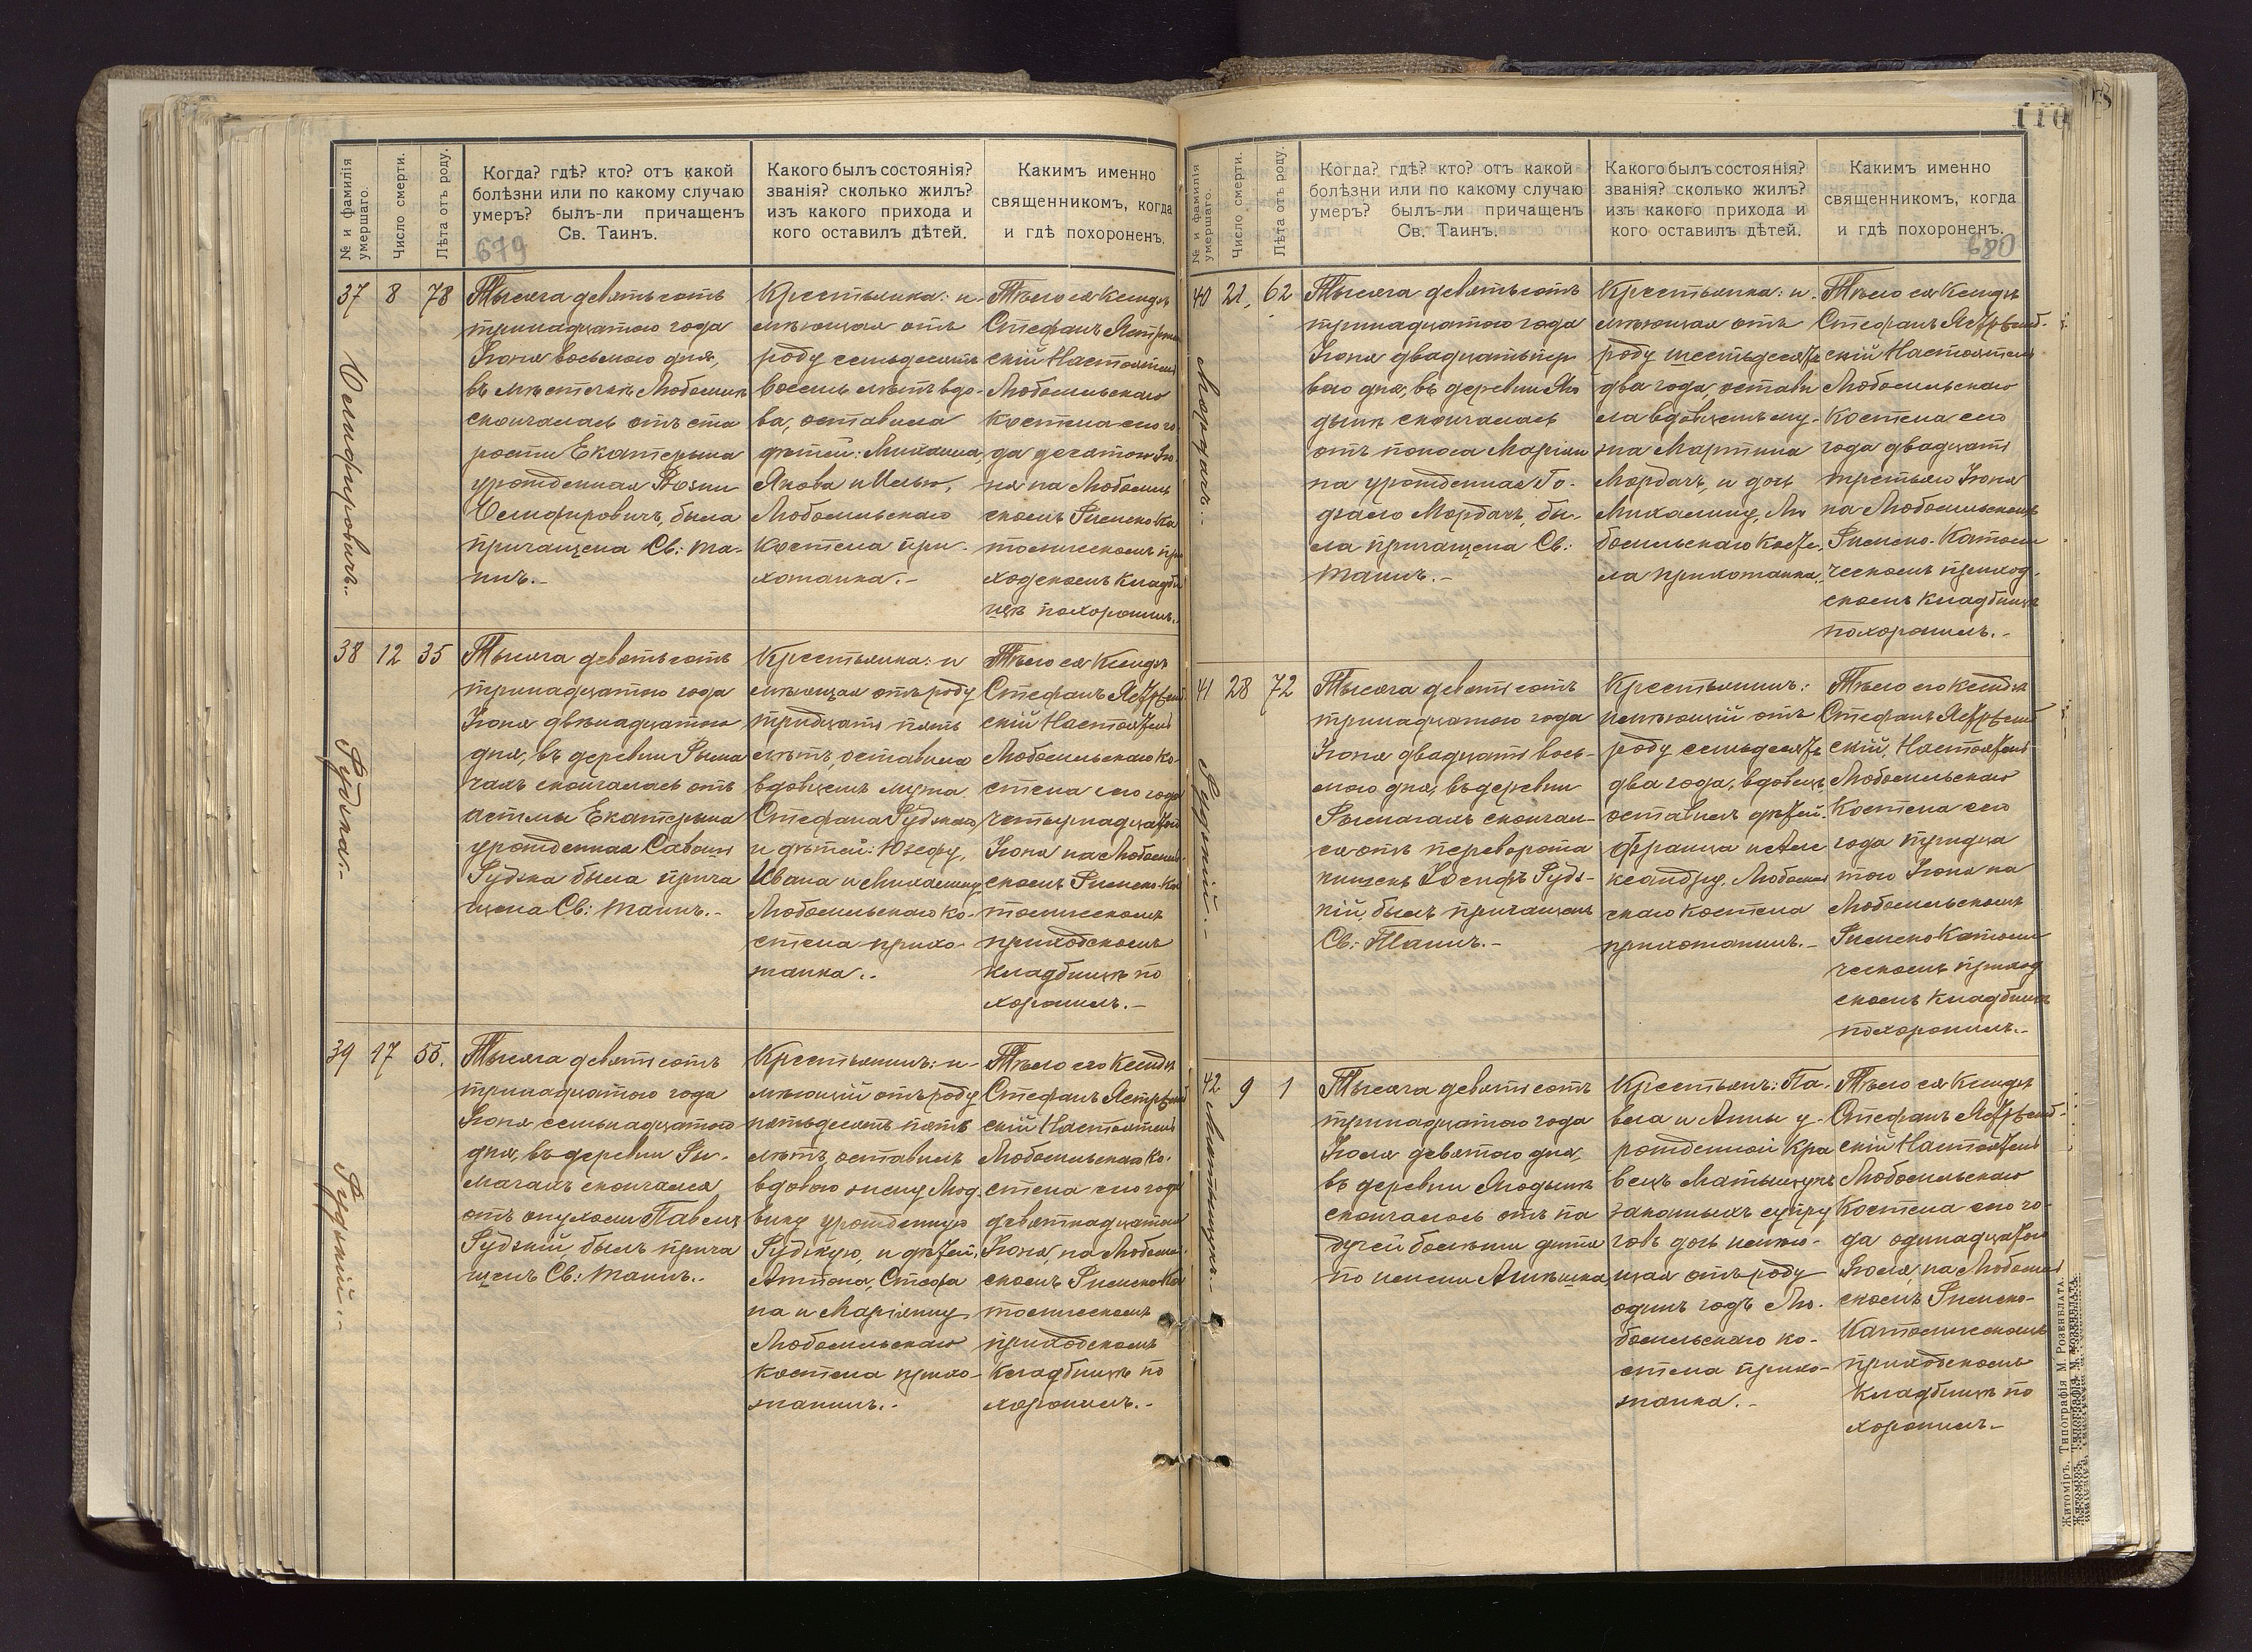 № и фамилія умершаго.
Число смерти.
Лѣта отъ роду.
Когда? гдѣ? кто? отъ какой
болѣзни или по какому случаю
умеръ? былъ-ли причащенъ
Св. Таинъ.
679
Какого былъ состоянія?
званія? сколько жилъ?
изъ какого прихода и
кого оставилъ дѣтей.
Какимъ именно
священникомъ, когда
и гдѣ похороненъ.
37 8 78
Тысяча девятьсотъ
тринадцатого года
Іюня восьмого дня,
въ мѣстечкѣ Любомлѣ
скончалась отъ ста
рости Екатерина
урожденная
была
причащена Св: Та-
инъ.-
Крестьянка: и-
мѣющая отъ
роду семьдесятъ
восемь лѣтъ вдо-
ва, оставила
дѣтей: Михаила,
Якова и
Любомльскаго
костела при-
хожанка.-
Тѣло ея Ксендзъ
Стефанъ
скій Настоятель
Любомльскаго
костела сего го
да десятого Ію
ня на Любомль
скомъ Римско-Ка
толическомъ при
ходскомъ кладби
щѣ похоронилъ.
38 12 35
Рудзка.-
Тысяча девятьсотъ
тринадцатого года
Іюня двѣнадцатого
дня, въ деревни Рыма
чахъ скончалась отъ
астмы Екатерина
урожденная
Рудзка была прича
щена Св: Таинъ.-
Крестьянка: и
мѣющая отъ роду
тридцать пять
лѣтъ, оставила
вдовцемъ мужа
Стефана Рудзкаго
и дѣтей: Юзефу,
Ивана и Михалину,
Любомльскаго ко-
стела прихо-
жанка.-
Тѣло ея Ксендзъ
Стефанъ
скій Настоятель
Любомльскаго ко-
стела сего года
четырнадцатого
Іюня на Любомль-
скомъ Римско-Ка
толическомъ
приходскомъ
кладбищѣ по
хоронилъ.-
39 17 55.
Рудзкій.-
Тысяча девятьсотъ
тринадцатого года
Іюня семнадцатого
дня, въ деревни Ры-
мачахъ скончался
отъ опухоли Павелъ
Рудзкій, былъ прича
щенъ Св: Таинъ.-
Крестьянинъ: и-
мѣющій отъ роду
пятьдесятъ пять
лѣтъ оставилъ
вдовою жену Люд
вику урожденную
Рудзкую, и дѣтей,
Антона, Стефа
на и Маріянну
Любомльскаго
костела прихо-
жанинъ.-
Тѣло его Ксендзъ
Стефанъ
скій Настоятель
Любомльскаго ко-
стела сего года
девятнадцатого
Іюня, на Любомль-
скомъ Римско-Ка
толическомъ
приходскомъ
кладбищѣ по
хоронилъ.-
110
№ и фамилія умершаго.
Число смерти.
Лѣта отъ роду.
Когда? гдѣ? кто? отъ какой
болѣзни или по какому случаю
умеръ? былъ-ли причащенъ
Св. Таинъ.
Какого былъ состоянія?
званія? сколько жилъ?
изъ какого прихода и
кого оставилъ дѣтей.
Какимъ именно
священникомъ, когда
и гдѣ похороненъ.
680
40 21. 62
Мордачъ.-
Тысяча девятьсотъ
тринадцатого года
Іюня двадцать пер
вого дня, въ деревни Яго
дынѣ скончалась
отъ поноса Маріян
на урожденная
Мордачъ, бы-
ла причащена Св:
Таинъ.-
Крестьянка: и-
мѣющая отъ
роду шестьдесятъ
два года, остави
ла вдовцемъ му-
жа Мартина
Мордачъ, и дочь
Михалину, Лю
бомльскаго косте-
ла прихожанка.
Тѣло ея Ксендзъ
Стефанъ
скій Настоятель
Любомльскаго
костела сего
года двадцать
третьяго Іюня
на Любомльскомъ
Римско-Католи
ческомъ приход-
скомъ кладбищѣ
похоронилъ.-
41 28 72
Рудзкій.-
Тысяча девятьсотъ
тринадцатого года
Іюня двадцать вось-
мого дня, въ деревни
Рымачахъ скончал-
ся отъ переворота
кишекъ Іосифъ Рудз-
кій, былъ причащенъ
Св: Таинъ.-
Крестьянинъ:
имѣющій отъ
роду семьдесятъ
два года, вдовецъ
оставилъ дѣтей:
Франца и Але
ксандру, Любомль
скаго костела
прихожанинъ.-
Тѣло его Ксендзъ
Стефанъ
скій, Настоятель
Любомльскаго
костела сего
года тридца
того Іюня на
Любомльскомъ
Римско Католи
ческомъ приход
скомъ кладбищѣ
похоронилъ.-
42 9 1
Тысяча девятьсотъ
тринадцатого года
Іюля девятого дня,
въ деревни
скончалось отъ па
дучей болѣзни дитя
по имени
Крестьянъ: Па-
вла и Анны у-
рожденной Кра
вецъ
законныхъ супру
говъ дочь имѣю-
щая отъ роду
одинъ годъ Лю-
бомльскаго ко-
стела прихо-
жанка.-
Тѣло ея Ксендзъ
Стефанъ
скій Настоятель
Любомльскаго
костела сего го-
да одинадцатого
Іюля, на Любомль
скомъ Римско-
Католическомъ
приходскомъ
кладбищѣ по
хоронилъ.-
Житоміръ, Типографія М. Розенблата.